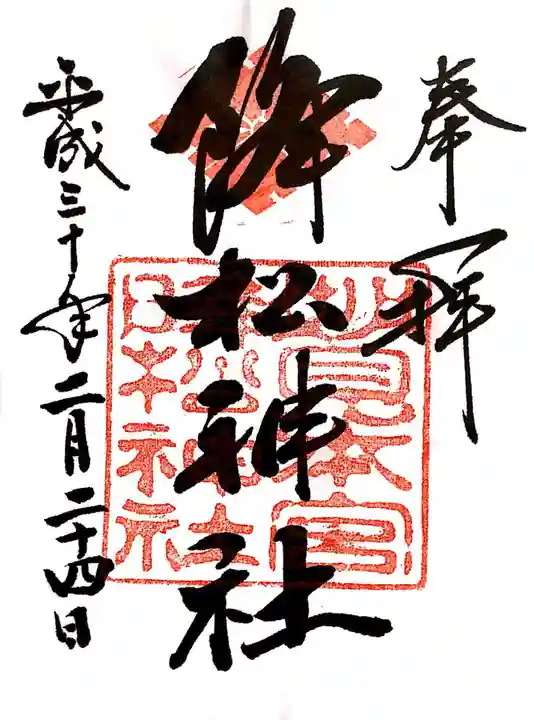 奉拝
降松神社
平成三十年二月二十四日